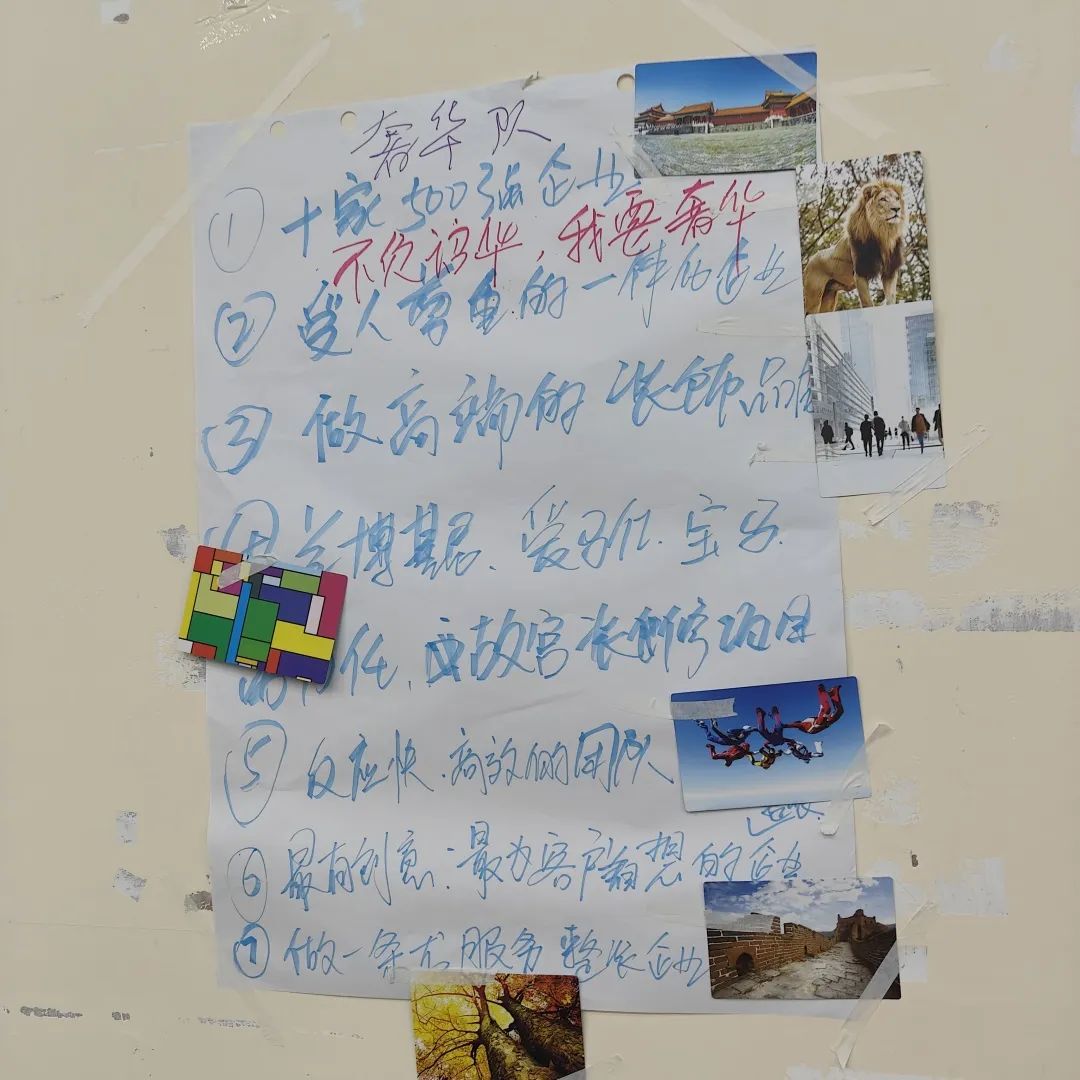 奢华队
① 十家500强企业
不负韶华，我要奢华
② 受人尊重的一样的企业
③ 做高端的装饰品
④ 兰博基尼、爱马仕、宝马
任，故宫装修项目
⑤ 反应快、高效的团队
⑥ 最有创意、最为客户着想的企业
⑦ 做一条龙服务整装企业